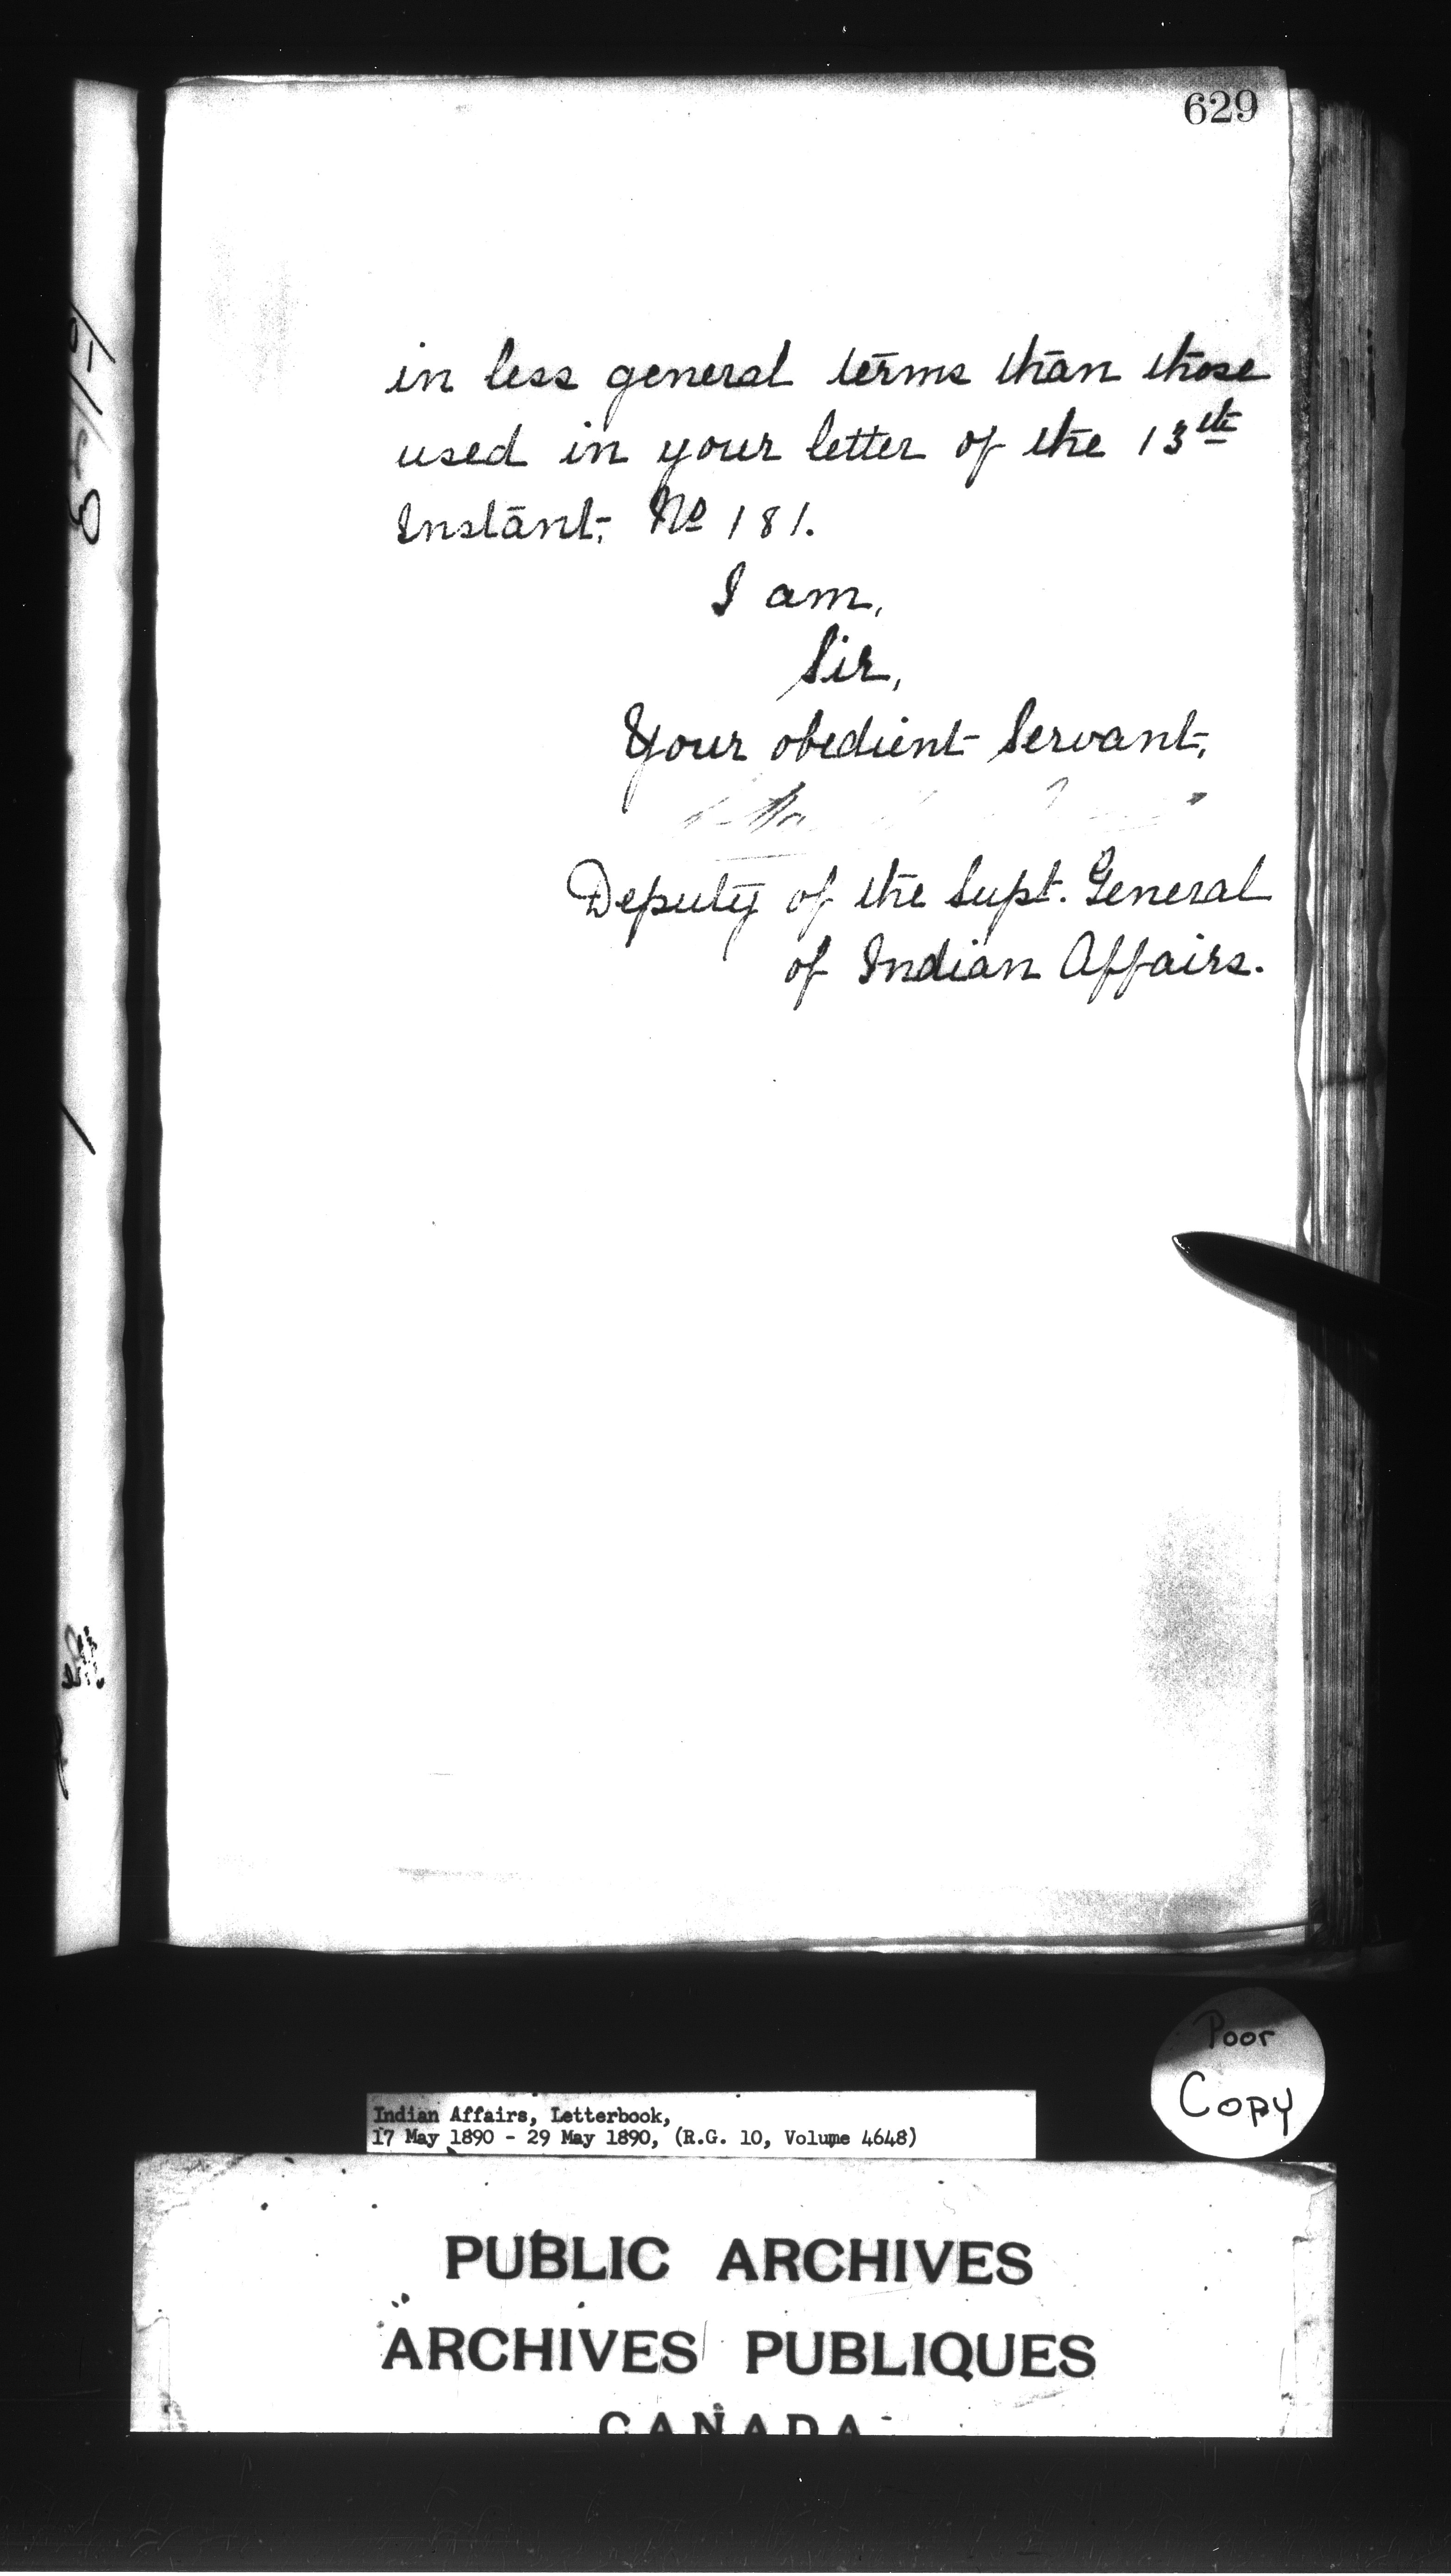 629
in less general terms than those
used in your letter of the 13th
Instant, No 181.
I am,
Sir,
Your obedient Servant,
Deputy of the Supt. General
of Indian Affairs.
Poor
Copy
Indian Affairs, Letterbook,
17 May 1890 - 29 May 1890, (R.G. 10, Volume 4648)
PUBLIC ARCHIVES
ARCHIVES PUBLIQUES
CANADA